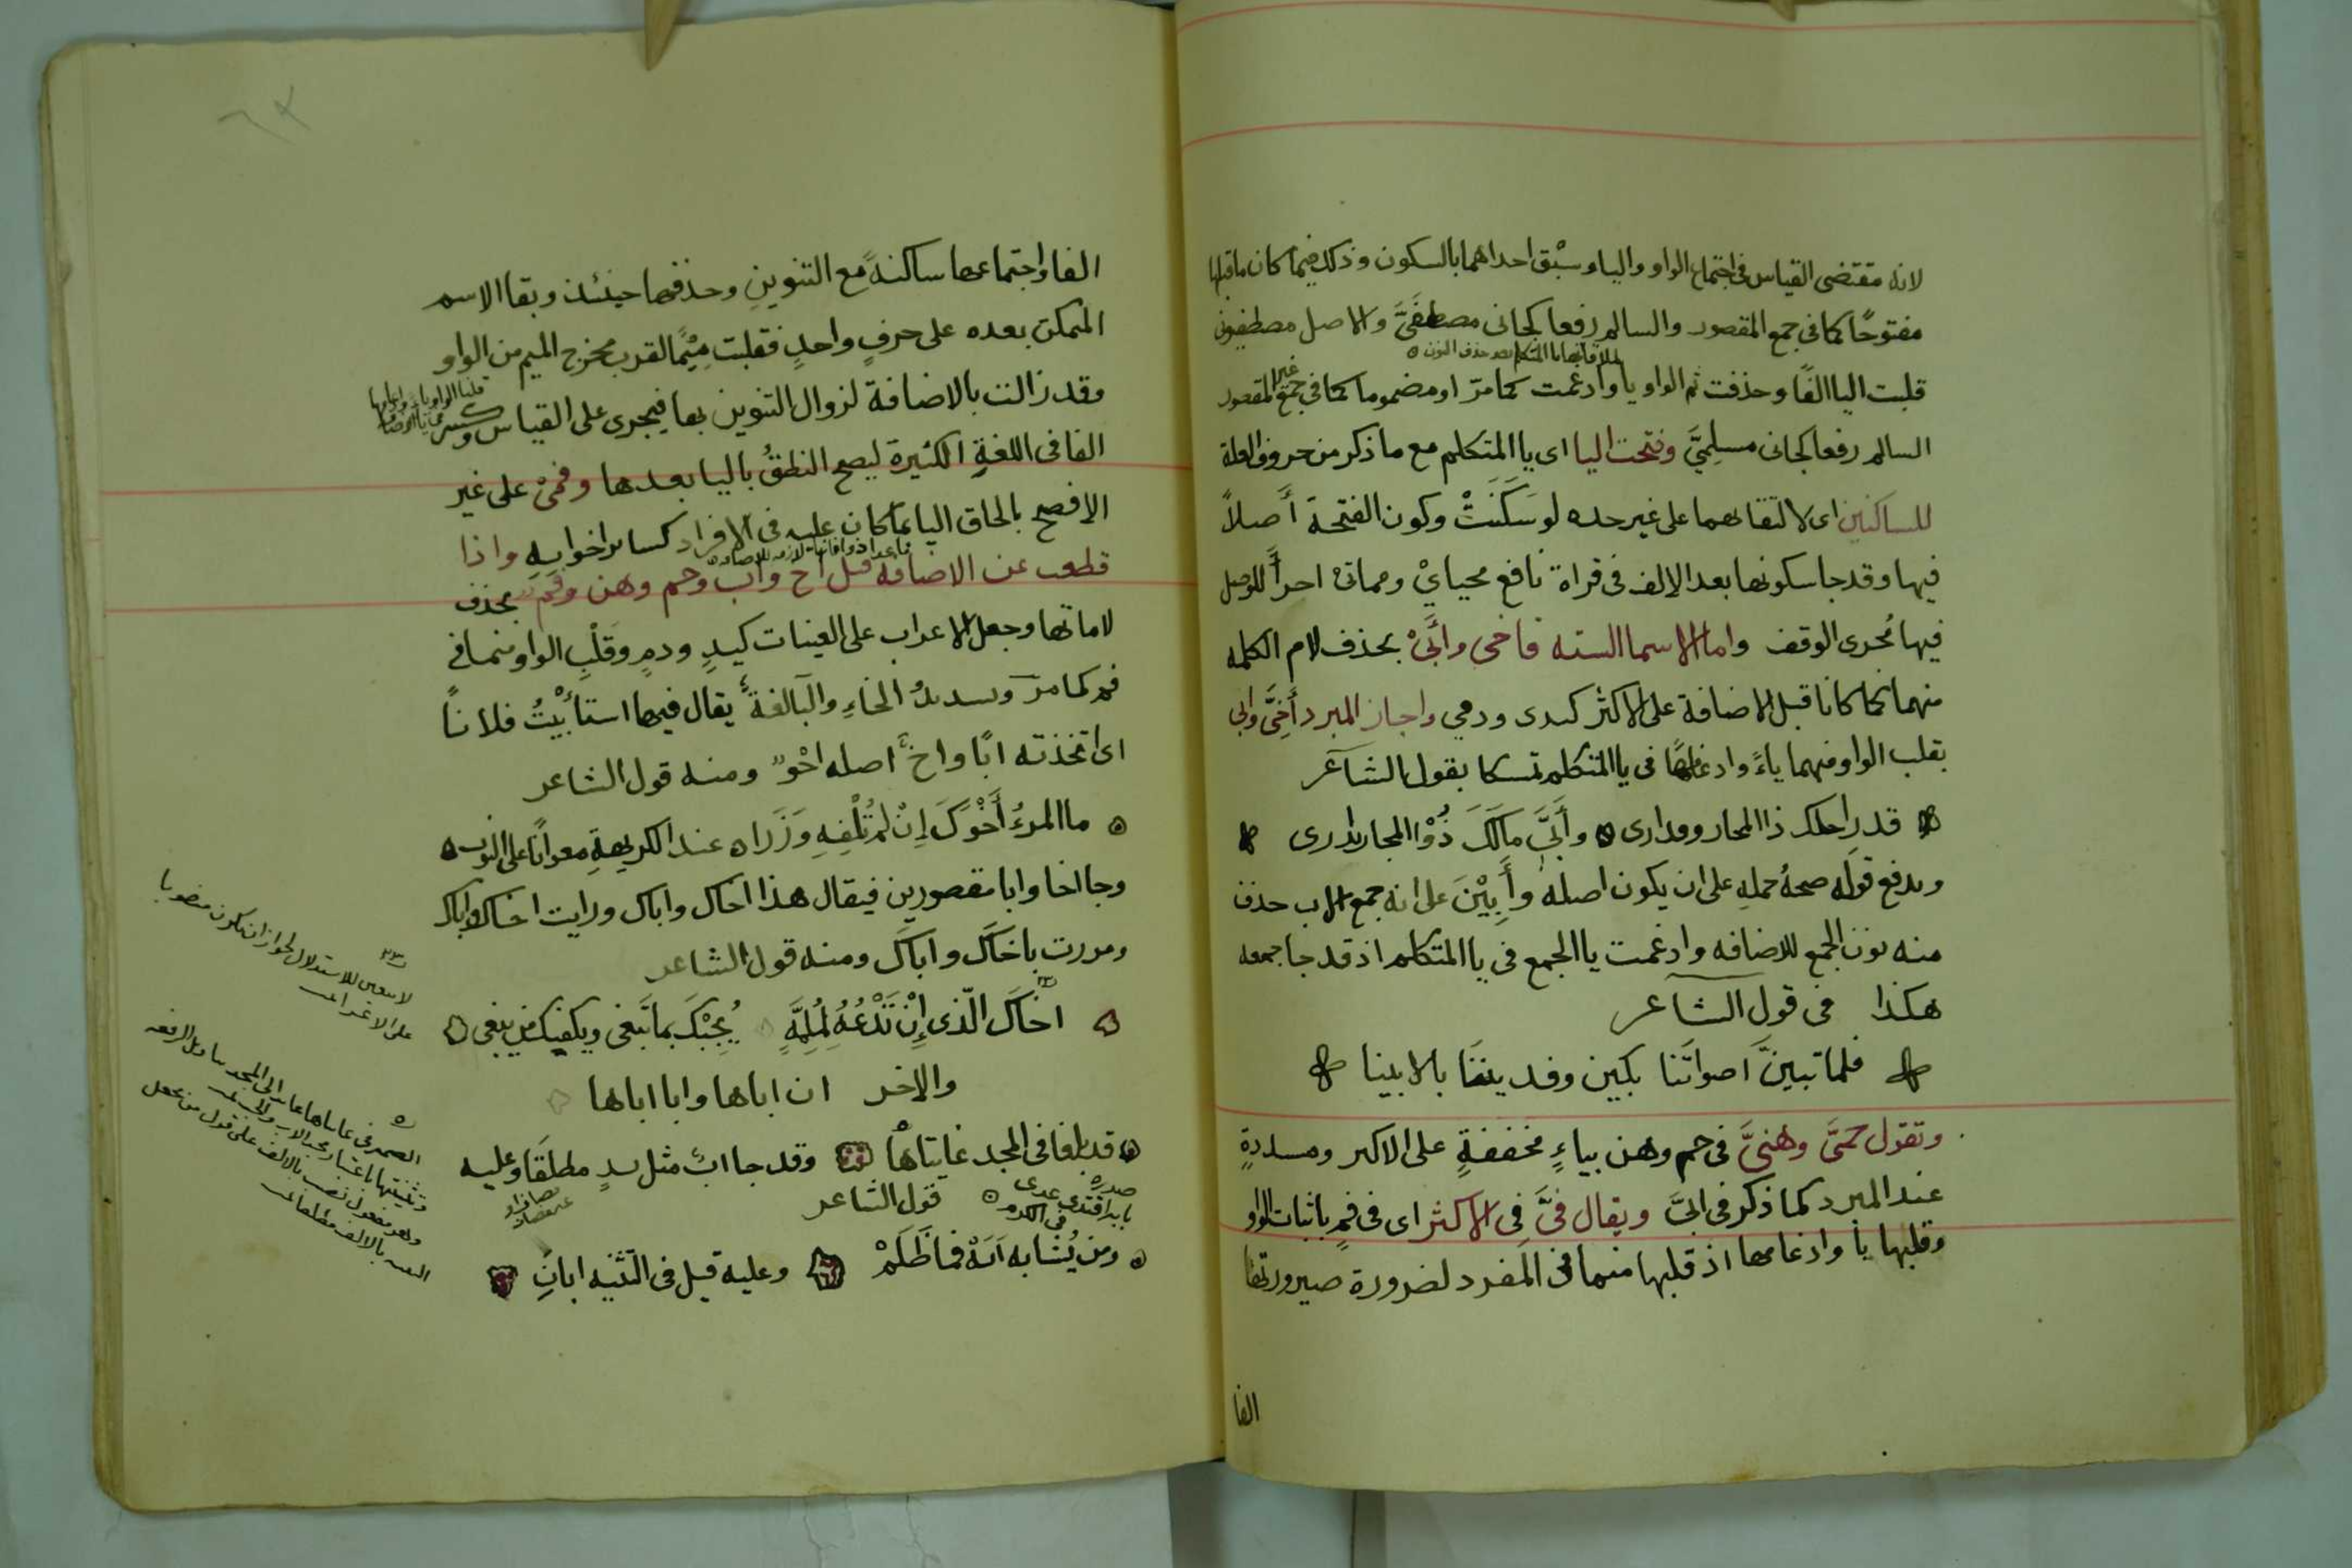 لانه مقتضى القياس فى اجتماع الواو والياء وسبْق احداهما بالسكون وذلك فيما كان ما قبلها
مفتوحًا كما فى جمع المقصور والسالم رفعا كجانى مصطفَىَّ والاصل مصطفيونى
لملاقاتها يا المتكلم بعد حذف النون
قلبت اليا الفًا وحذفت ثم الواو يا وادغمت كما مرّ او مضموما كما فى جمع غير المقصور
السالم رفعا كجانى مسلِمِىَّ وفتحت اليا اى يا المتكلم مع ما ذكر من حروف العلة
للساكنين اى لالتقائهما على غير حده لو سَكَنَتْ وكون الفتحة أصلاً
فيها وقد جا سكونها بعد الالف فى قراة نافع محيايْ ومماتىْ اجراً للوصل
فيها مُجرى الوقف واما الاسما الستة فاخى وأَبىْ بحذف لام الكلمه
منهما كما كانا قبل الاضافة على الاكثر كيدى ودمى واجاز المبرد أَخِىَّ وابى
بقلب الواو فيهما ياءً وادغامها فى يا المتكلم تمسكا بقول الشاعر
قدر احلك ذا المجاز وقد ارى وأَبىَّ مالَكَ ذُوْ المجاز بدار
ويدفع قوله صحةُ حمله على ان يكون اصله وأَبِيْنَ على انه جمع اب حذف
منه نون الجمع للاضافه وادغمت يا الجمع فى يا المتكلم اذ قد جا جمعه
هكذا فى قول الشاعر
فلما تبينَّ اصواتَنا بكين وفدينَنَا بالابينا
وتقول حمىَّ وهنىَّ فى حم وهن بياءٍ مخففةٍ على الاكثر ومشددةٍ
عند المبرد كما ذكر فى ابىَّ ويقال فىَّ فى الاكثر اى فى فمٍ باثبات الواو
وقلبها يا وادغامها اذ قلبها ميما فى المفرد لضرورة صيرورتها
الفا
الفا واجتماعها ساكنةً مع التنوين وحذفها حينئذ وبقا الاسم
المتمكن بعده على حرفٍ واحدٍ فقلبت مِيْمًا لقرب مخرج الميم من الواو
وقد زالت بالاضافة لزوال التنوين بها فيجرى على القياس وكسر
الفا فى اللغة الكثيرة ليصح النطقُ باليا بعدها وفمىْ على غير
الافصح بالحاق اليا بما كان عليه فى الافراد كسائر اخواته واذا
ما عدا ذو فانها لازمه للاضافه
قطعت عن الاضافة قيل اخ واب وحم وهن وفم بحذف
لاماتها وجعل الاعراب على العينات كيدٍ ودمٍ وقلْبِ الواو ميما فى
فم كما مرّ وتشديدُ الخاءِ والبآ لغةً يقال فيهما استأبَيْتُ فلانًا
اى اتخذته ابًا واخٌ اصله اخْوٌ ومنه قول الشاعر
ما المرءُ أَخْوَكَ إنْ لم تُلْفِهِ وَزَرا عند الكريهةِ معوانًا على النوب
وجا اخا وابا مقصورين فيقال هذا اخاك واباك ورايت اخاك واباك
ومررت باخاكَ واباكَ ومنه قول الشاعر
اخاكَ الّذى إنْ تَدْعُهُ لمُلِمَّةٍ يُجِبْكَ بما تَبغى ويكفيك من يبغى
والاخر ان اباها وابا اباها
قد بلغا فى المجد غايتاها وقد جا ابٌ مثل يدٍ مطلقًا وعليه
قول الشاعر
صدره
بابه اقتدى عدى
فى الكرم
ومن يُشابه ابَهْ فما ظَلَمْ وعليه قيل فى التثنيه ابانِ
لا يتعين للاستدلال لجواز ان يكون منصوبا
على الاغراء